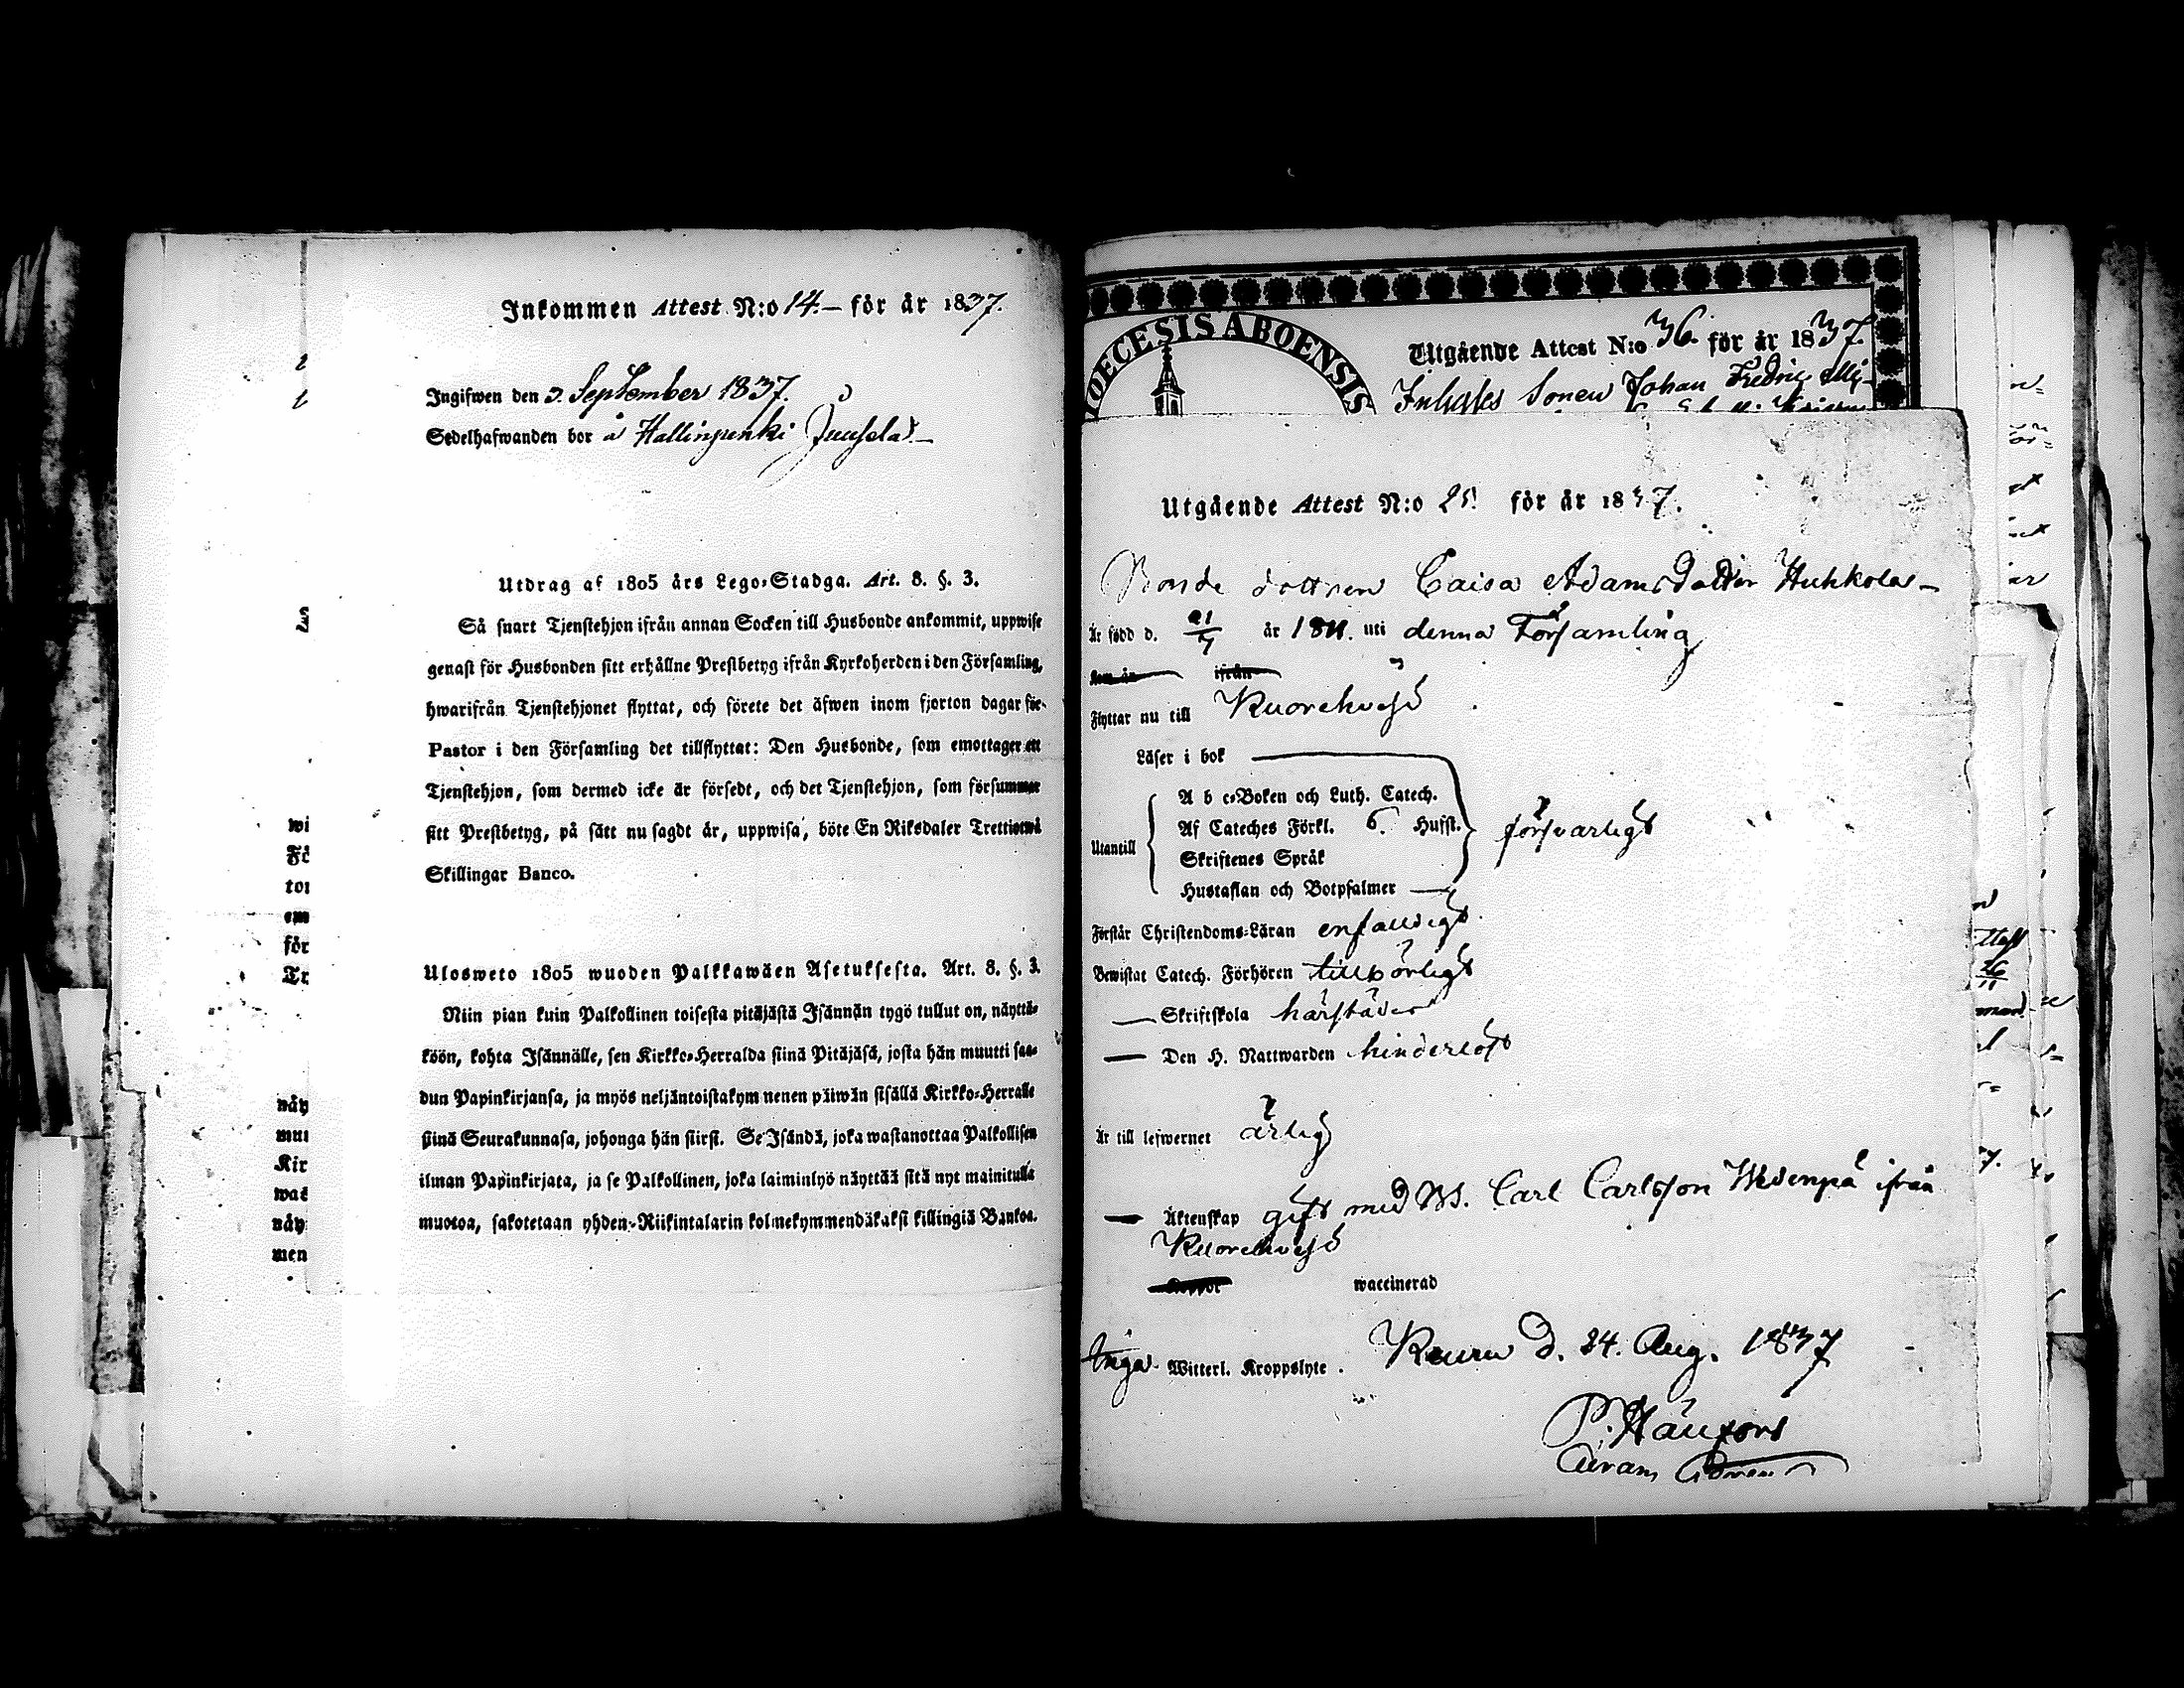 Inkommen Attest N:o 14.– för år 1837.
Ingifwen den 3. September 1837.
Sedelhafwanden bor å Hallinpenki Juusela.–
Utdrag af 1805 års Lego-Stadga. Art. 8. §. 3.
Så snart Tjenstehjon ifrån annan Socken till Husbonde ankommit, uppwise
genast för Husbonden sitt erhållne Prestbetyg ifrån Kyrkoherden i den Församling,
hwarifrån Tjenstehjonet flyttat, och förete det äfwen inom fjorton dagar för
Pastor i den Församling det tillflyttat: Den Husbonde, som emottager ett
Tjenstehjon, som dermed icke är försedt, och det Tjenstehjon, som försummar
sitt Prestbetyg, på sätt nu sagdt är, uppwisa, böte En Riksdaler Trettiotwå
Skillingar Banco.
Ulosweto 1805 wuoden Palkkawäen Asetuksesta. Art. 8. §. 3.
Niin pian kuin Palkollinen toisesta pitäjästä Isännän tygö tullut on, näyttä-
köön, kohta Isännälle, sen Kirkko-Herralda siinä Pitäjäsä, josta hän muutti saa-
dun Papinkirjansa, ja myös neljäntoistakymmenen päiwän sisällä Kirkko-Herralle
siinä Seurakunnasa, johonga hän siirst. Se Isändä, joka wastanottaa Palkollisen
ilman Papinkirjata, ja se Palkollinen, joka laiminlyö näyttää sitä nyt mainitulla
muotoa, sakotetaan yhden-Riikintalarin kolmekymmendäkaksi killingiä Bankoa.
wi
Fö
tor
em
för
Tr
näy
muu
Kir
was
näy
men
DIOECESIS ABOENSIS
Utgående Attest N:o 36. för år 1837.
Inhyses Sonen Johan Fredric
Utgående Attest N:o 25. för år 1837.
Bonde dottren Caisa Adamsdotter Huhkola–
Är född d. 21/7 år 1811. uti denna Församling
Kom år ifrån
Flyttar nu till Kuorehvesi
Läser i bok
A b c-Boken och Luth. Catech.
Af Cateches Förkl. 6. Husst. försvarligt
Utantill
Skriftenes Språk
Hustaflan och Botpsalmer
Förstår Christendoms-Läran enfaldigt
Bewistat Catech. Förhören tillbörligt
— Skriftskola härstädes
— Den H. Nattwarden hinderlöst
Är till lefwernet ärlig
— Äktenskap gift med BS. Carl Carlsson Wedenpä ifrån
Kuorehvesi
Koppor waccinerad
Inga Witterl. Kroppslyte. Keuru d. 24. Aug. 1837